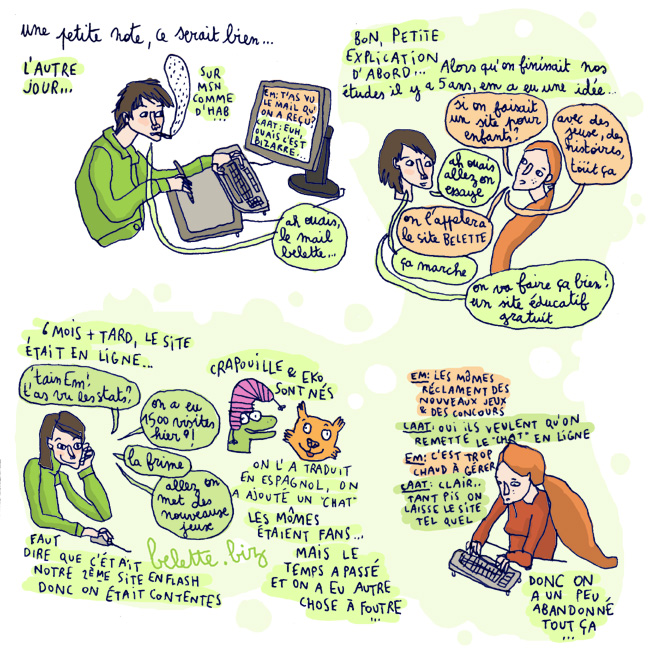 une petite note, ce serait bien...
L'AUTRE
JOUR...
SUR
MSN
COMME
D'HAB
...
EM: T'AS VU
LE MAIL QU'
ON A REÇU?
LAAT: EUH,
OUAIS C'EST
BIZARRE...
ah ouais,
le mail
belette...
BON, PETITE
EXPLICATION
D'ABORD... Alors qu'on finissait nos
études il y a 5 ans, em a eu une idée...
si on faisait
un site pour
enfants?
avec des
jeux, des
histoires,
tout ça
ah ouais
allez on
essaye
on l'appelera
le site BELETTE
ça marche
on va faire ça bien!
un site éducatif
gratuit
6 MOIS + TARD, LE SITE
ÉTAIT EN LIGNE...
'tain Em!
t'as vu les stats?
on a eu
1500 visites
hier!
la frime
allez on
met des
nouveaux
jeux
FAUT
DIRE QUE C'ÉTAIT belette.biz
NOTRE 2ÈME SITE EN FLASH
DONC ON ÉTAIT CONTENTES
CRAPOUILLE & EKO
SONT NÉS
ON L'A TRADUIT
EN ESPAGNOL, ON
A AJOUTÉ UN "CHAT"
LES MÔMES
ÉTAIENT FANS...
MAIS LE
TEMPS A PASSÉ
ET ON A EU AUTRE
CHOSE À FOUTRE
...
EM: LES MÔMES
RÉCLAMENT DES
NOUVEAUX JEUX
& DES CONCOURS
LAAT: OUI ILS VEULENT QU'ON
REMETTE LE "CHAT" EN LIGNE
EM: C'EST TROP
CHAUD À GÉRER
LAAT: CLAIR..
TANT PIS ON
LAISSE LE SITE
TEL QUEL
DONC ON
A UN PEU
ABANDONNÉ
TOUT ÇA
...